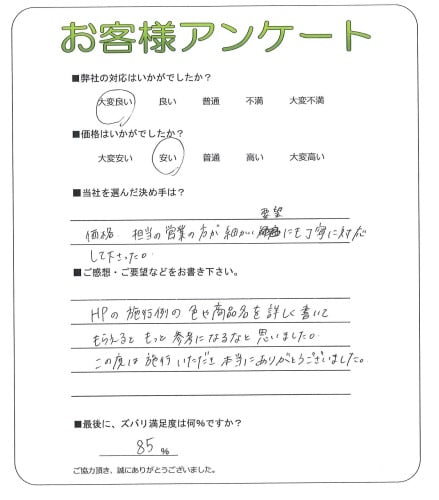 お客様アンケート
■弊社の対応はいかがでしたか？
大変良い 良い 普通 不満 大変不満
■価格はいかがでしたか？
大変安い 安い 普通 高い 大変高い
■当社を選んだ決め手は？
要望
価格、担当の営業の方が細かい にも丁寧に対応
して下さった。
■ご感想・ご要望などをお書き下さい。
HPの施行例の色や商品名を詳しく書いて
もらえると もっと参考になるなと思いました。
この度は施行いただき本当にありがとうございました。
■最後に、ズバリ満足度は何％ですか？
85％
ご協力頂き、誠にありがとうございました。